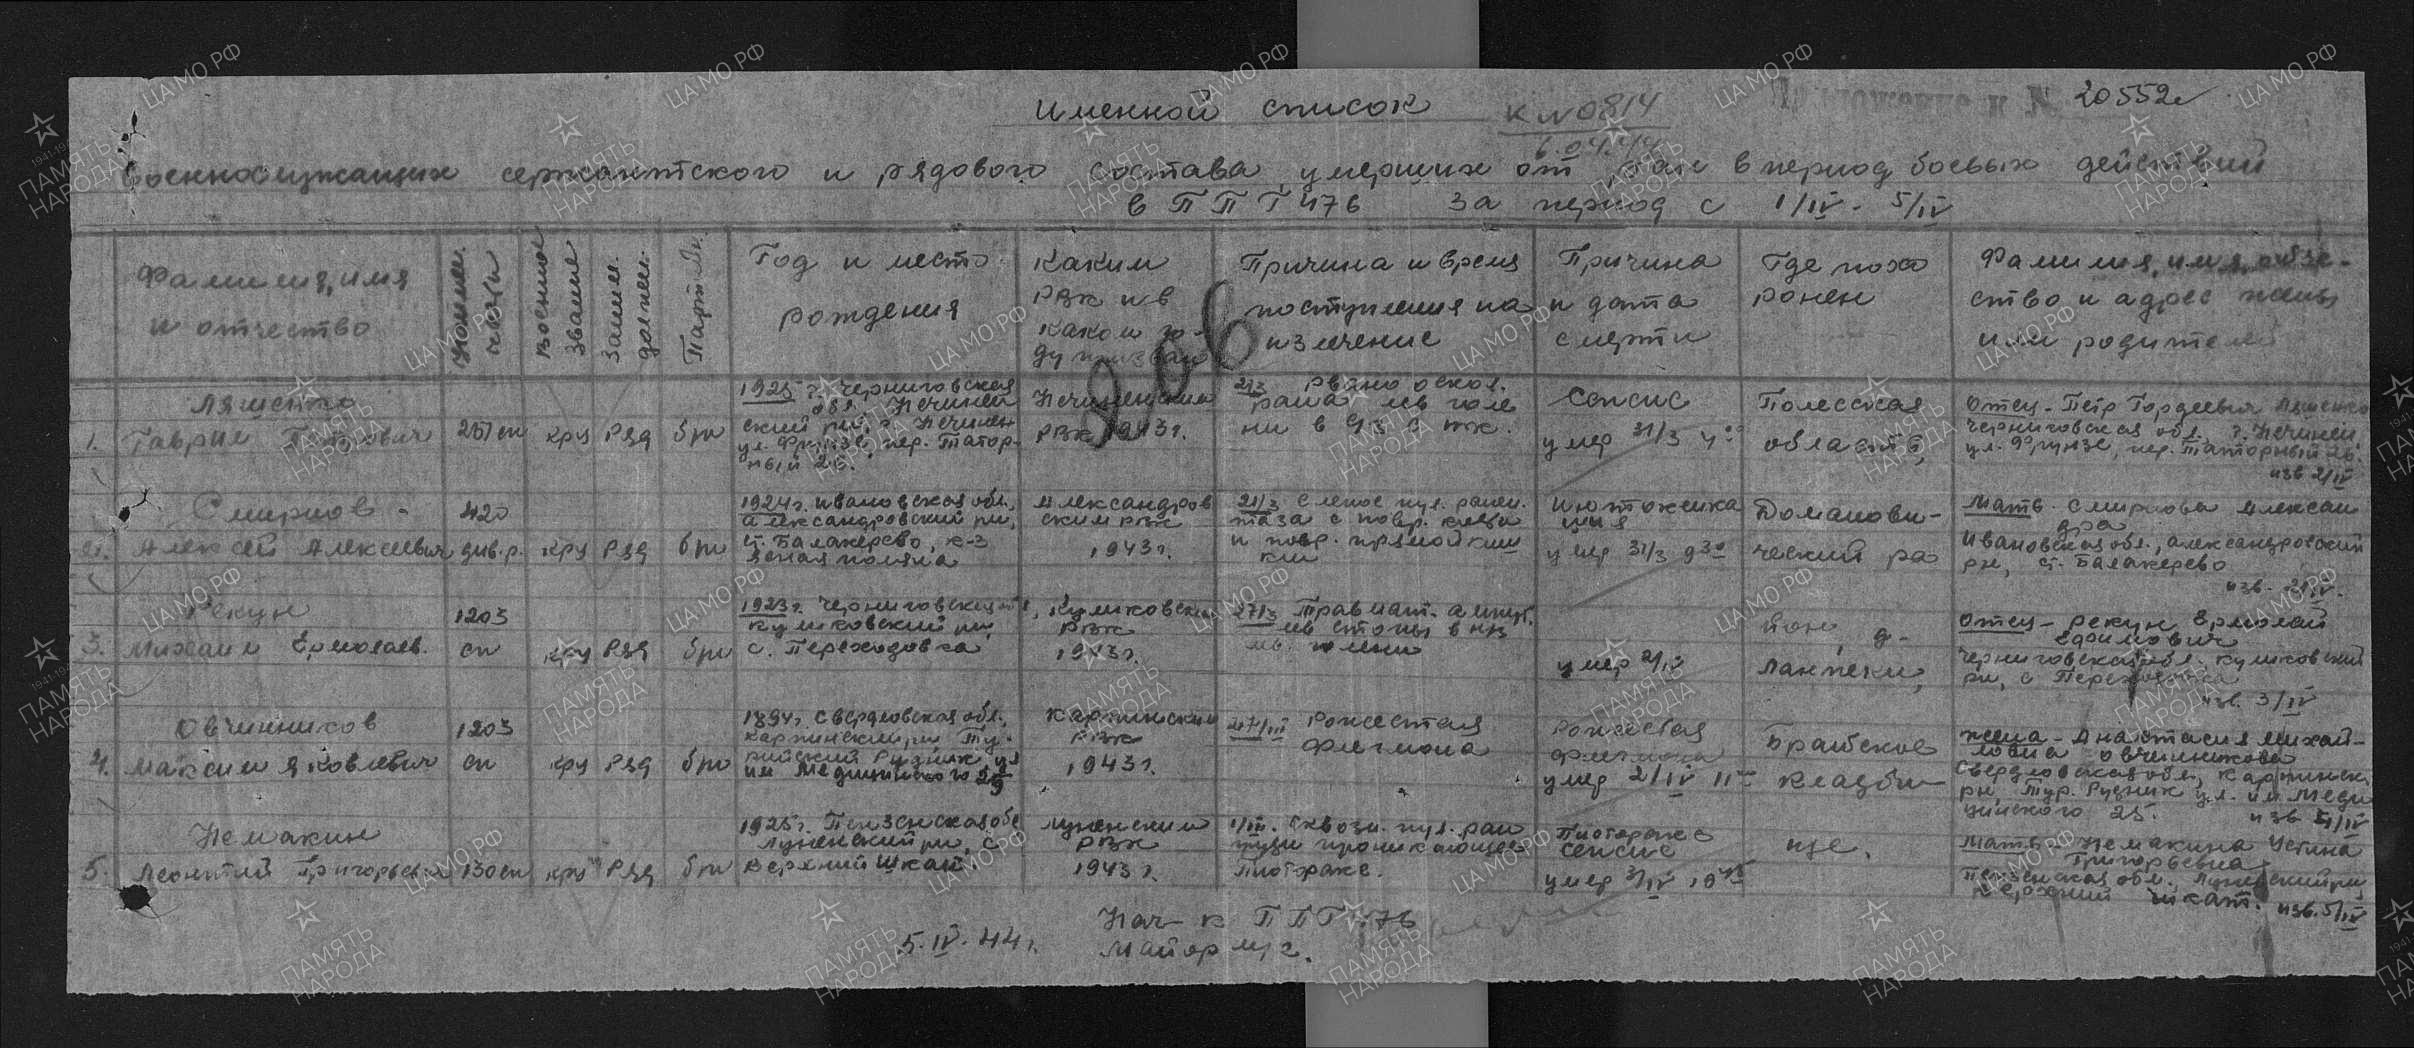 Именной список
К N 0814
6.04.44
Приложение к № 20552с
военнослужащих сержантского и рядового состава, умерших от ран в период боевых действий
в ППГ 476 за период с 1/IV - 5/IV
Фамилия, имя и отчество
Наимен. части
Военное звание
Заним. должн.
Партийн.
Год и место рождения
Каким РВК и в каком году призван
Причина и время поступления на излечение
Причина и дата смерти
Где похоронен
Фамилия, имя, отчество и адрес жены или родителей
1. Ляшенко
Гаврил Петрович
кр-ц Ряд б/п
1925 г. Черниговская
обл. Нежин
ул. Фрунзе, пер.
РВК 1943 г.
рвано оскол.
рана лев голе
ни в с/3 с пк.
Сепсис
умер 31/3 4 00
Полесская
область,
Отец - Пётр Гордеевич Ляшенко
Черниговская обл. г. Нежин
ул. Фрунзе, пер.
изв 2/IV
2. Смирнов
Алексей Алексеевич
420
див. р. кр-ц Ряд б/п
1924 г. Ивановская обл.,
Александровский р-н,
ст. Балакерево, к-з
Ясная поляна
Александров
ским РВК
1943 г.
21/3 Слепое пул. ранен.
таза с повр. кости
и повр. прямой киш
ки
умер 31/3 9 30
Доманови-
ческий ра
Мать - Смирнова Алексан
дра
Ивановская обл., Александровский
р-н, ст. Балакерево
изв. 2/IV.
3. Рекун
Михаил Ермолаев.
1203
сп кр-ц Ряд б/п
1923 г. Черниговская обл,
Куликовский р-н,
с. Переходовка
Куликовским
РВК
1943 г.
27/3 Травмат. ампут.
лев стопы в н/з
лев. голени
умер 2/IV
йон, д.
Отец - Рекун Ермолай
Ефимович
Черниговская обл. Куликовский
р-н, с Переходовка
изв. 3/IV
4. Овчинников
Максим Яковлевич
1203
сп кр-ц Ряд б/п
1894 г. Свердловская обл.,
Карпинский р-н, Ту-
Рудник ул
им
Карпинским
РВК
1943 г.
27/III Рожистая
флегмона
Рожистая
флегмона
умер 2/IV 11 00
Братское
кладби-
жена - Анастасия Михай-
ловна Овчинникова
Свердловская обл, Карпинск
р-н, Тур. Рудник ул. им
25. изв 5/IV
5. Немакин
Леонтий Григорьевич
130 сп кр-ц Ряд б/п
1925 г. Пензенская обл
Лунинский р-н, с
Верхний Шкаф
Лунинским
РВК
1943 г.
1/III. Сквозн. пул. ран
груди проникающее
Пиоторакс.
Пиоторакс
сепсис
умер 3/IV
ще.
Мать - Немакина Устина
Григорьевна
Пензенская обл. Лунинский р-н,
Верхний
изв. 5/IV
5. IV. 44 г.
Нач-к ППГ 476
Майор м/с.
906